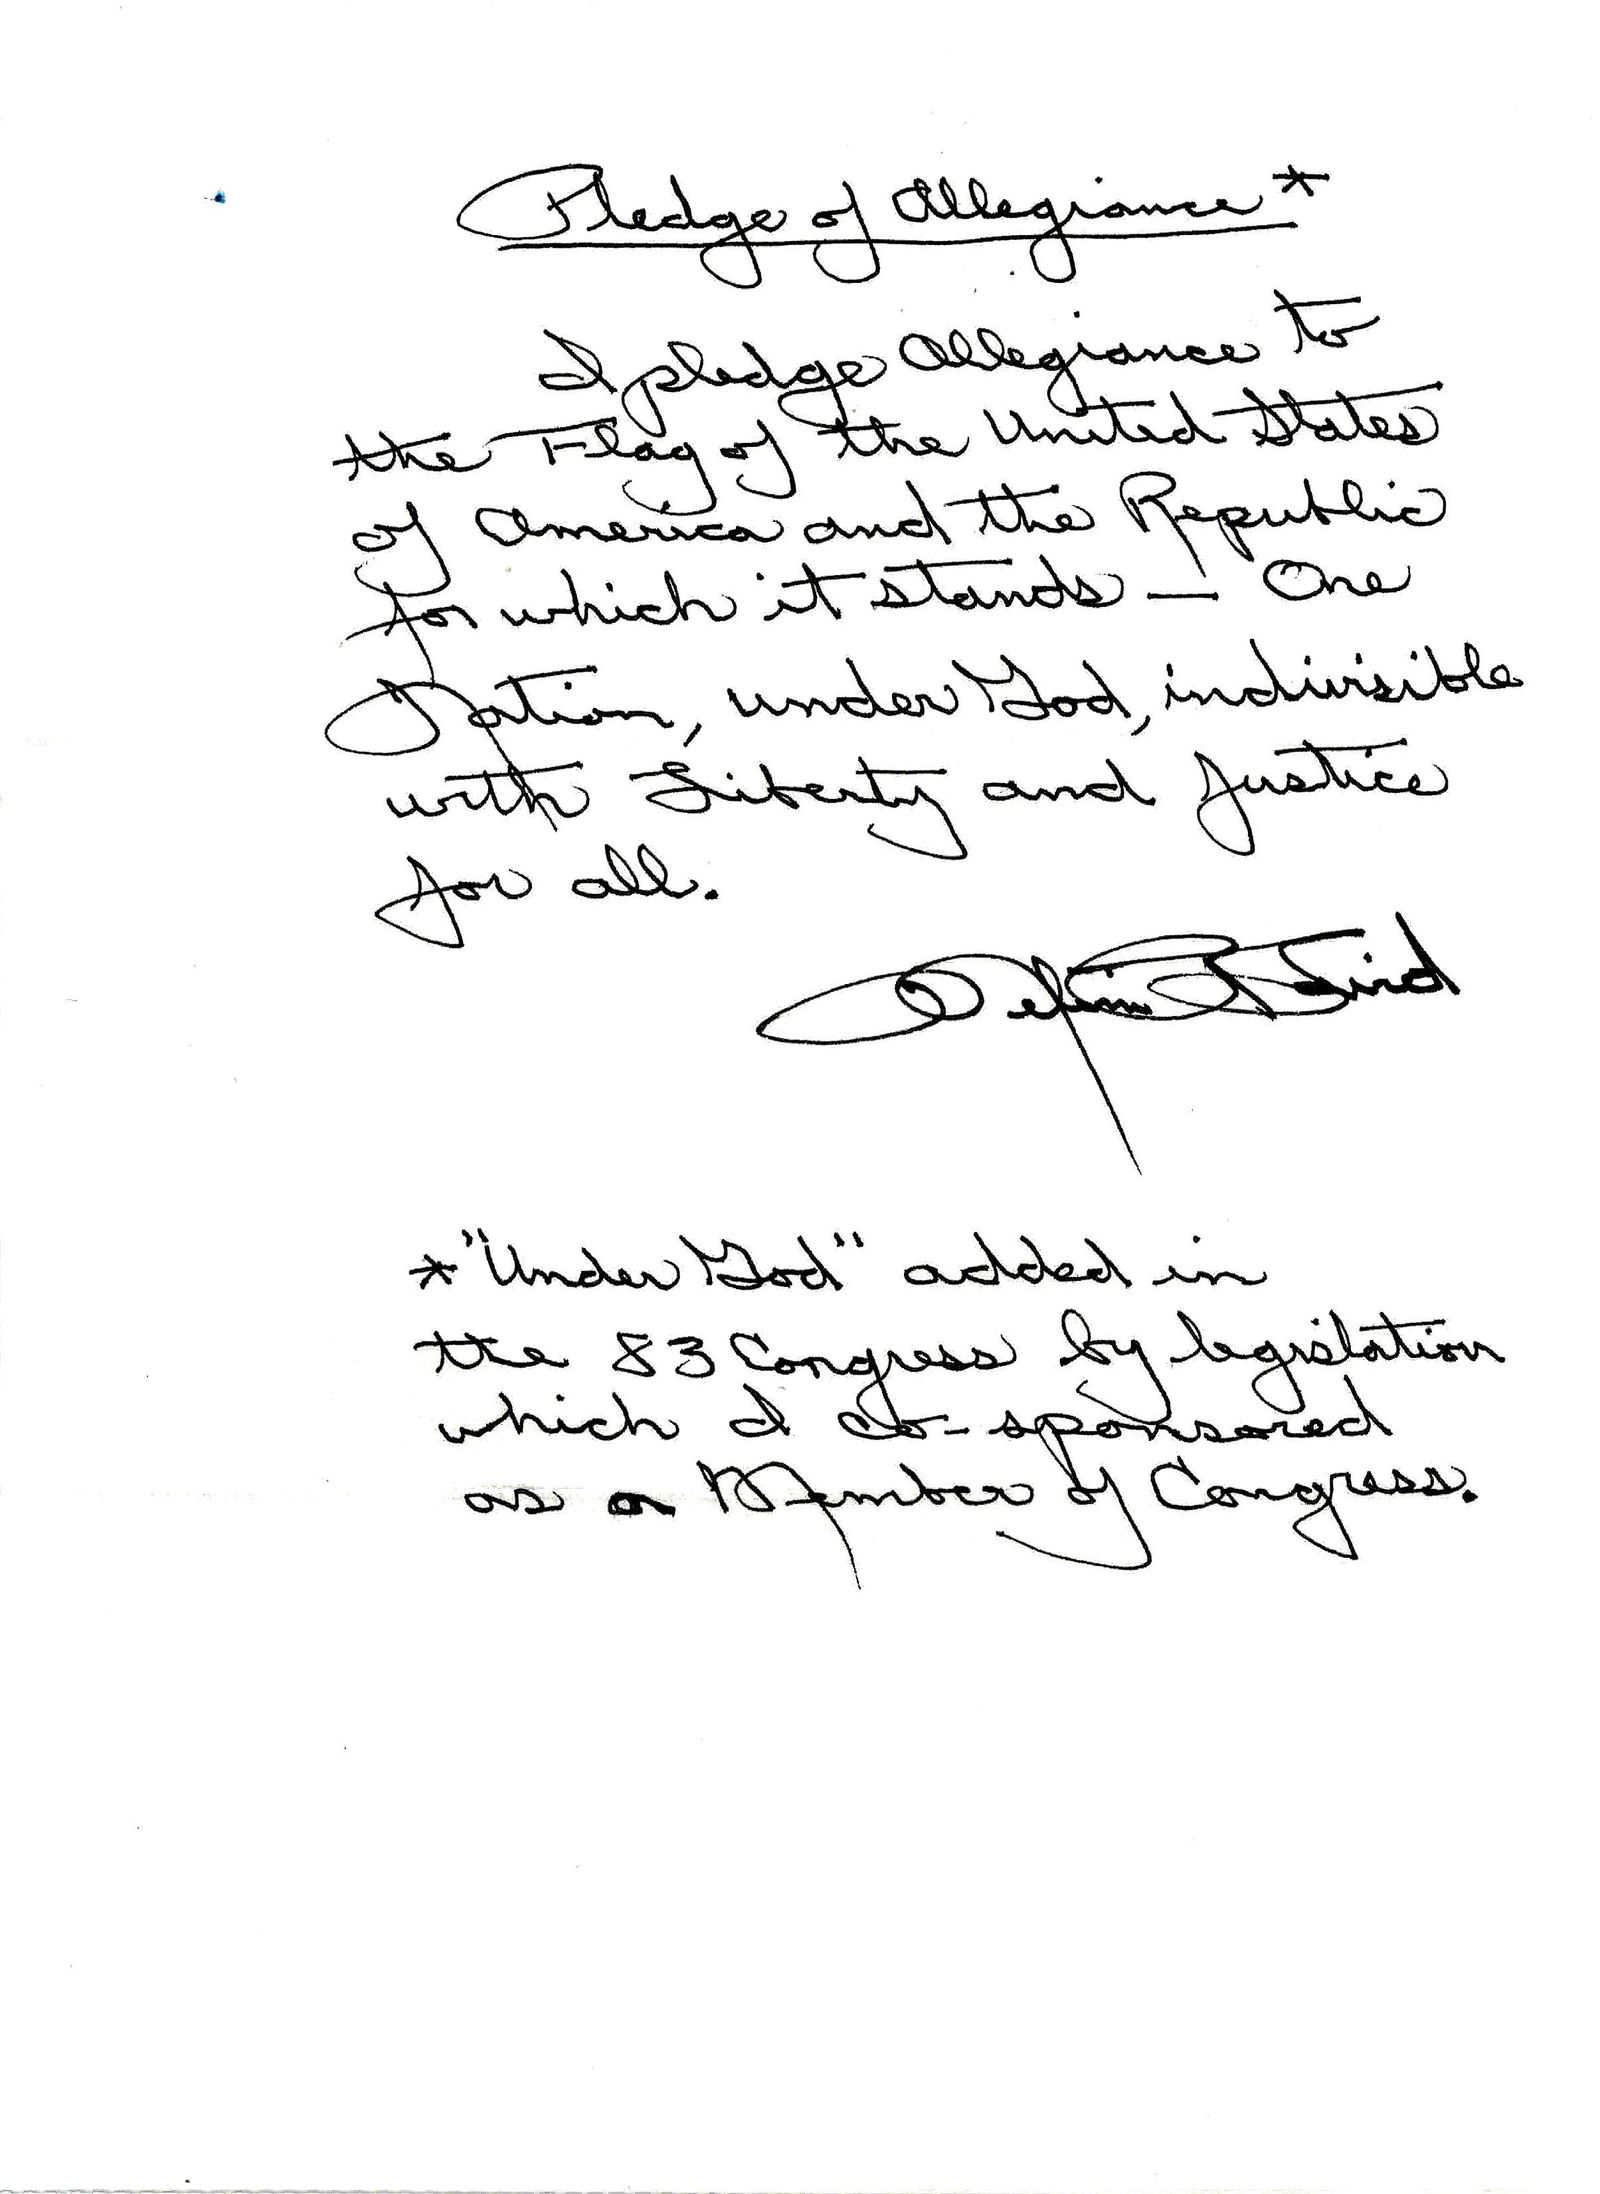 Pledge of Allegiance*
I pledge Allegiance to
the Flag of the United States
of America and the Republic
for which it stands — One
Nation, under God, indivisible
with Liberty and Justice
for all.
Melvin R Laird
*"Under God" added in
the 83 Congress by legislation
which I co-sponsored
as a Member of Congress.